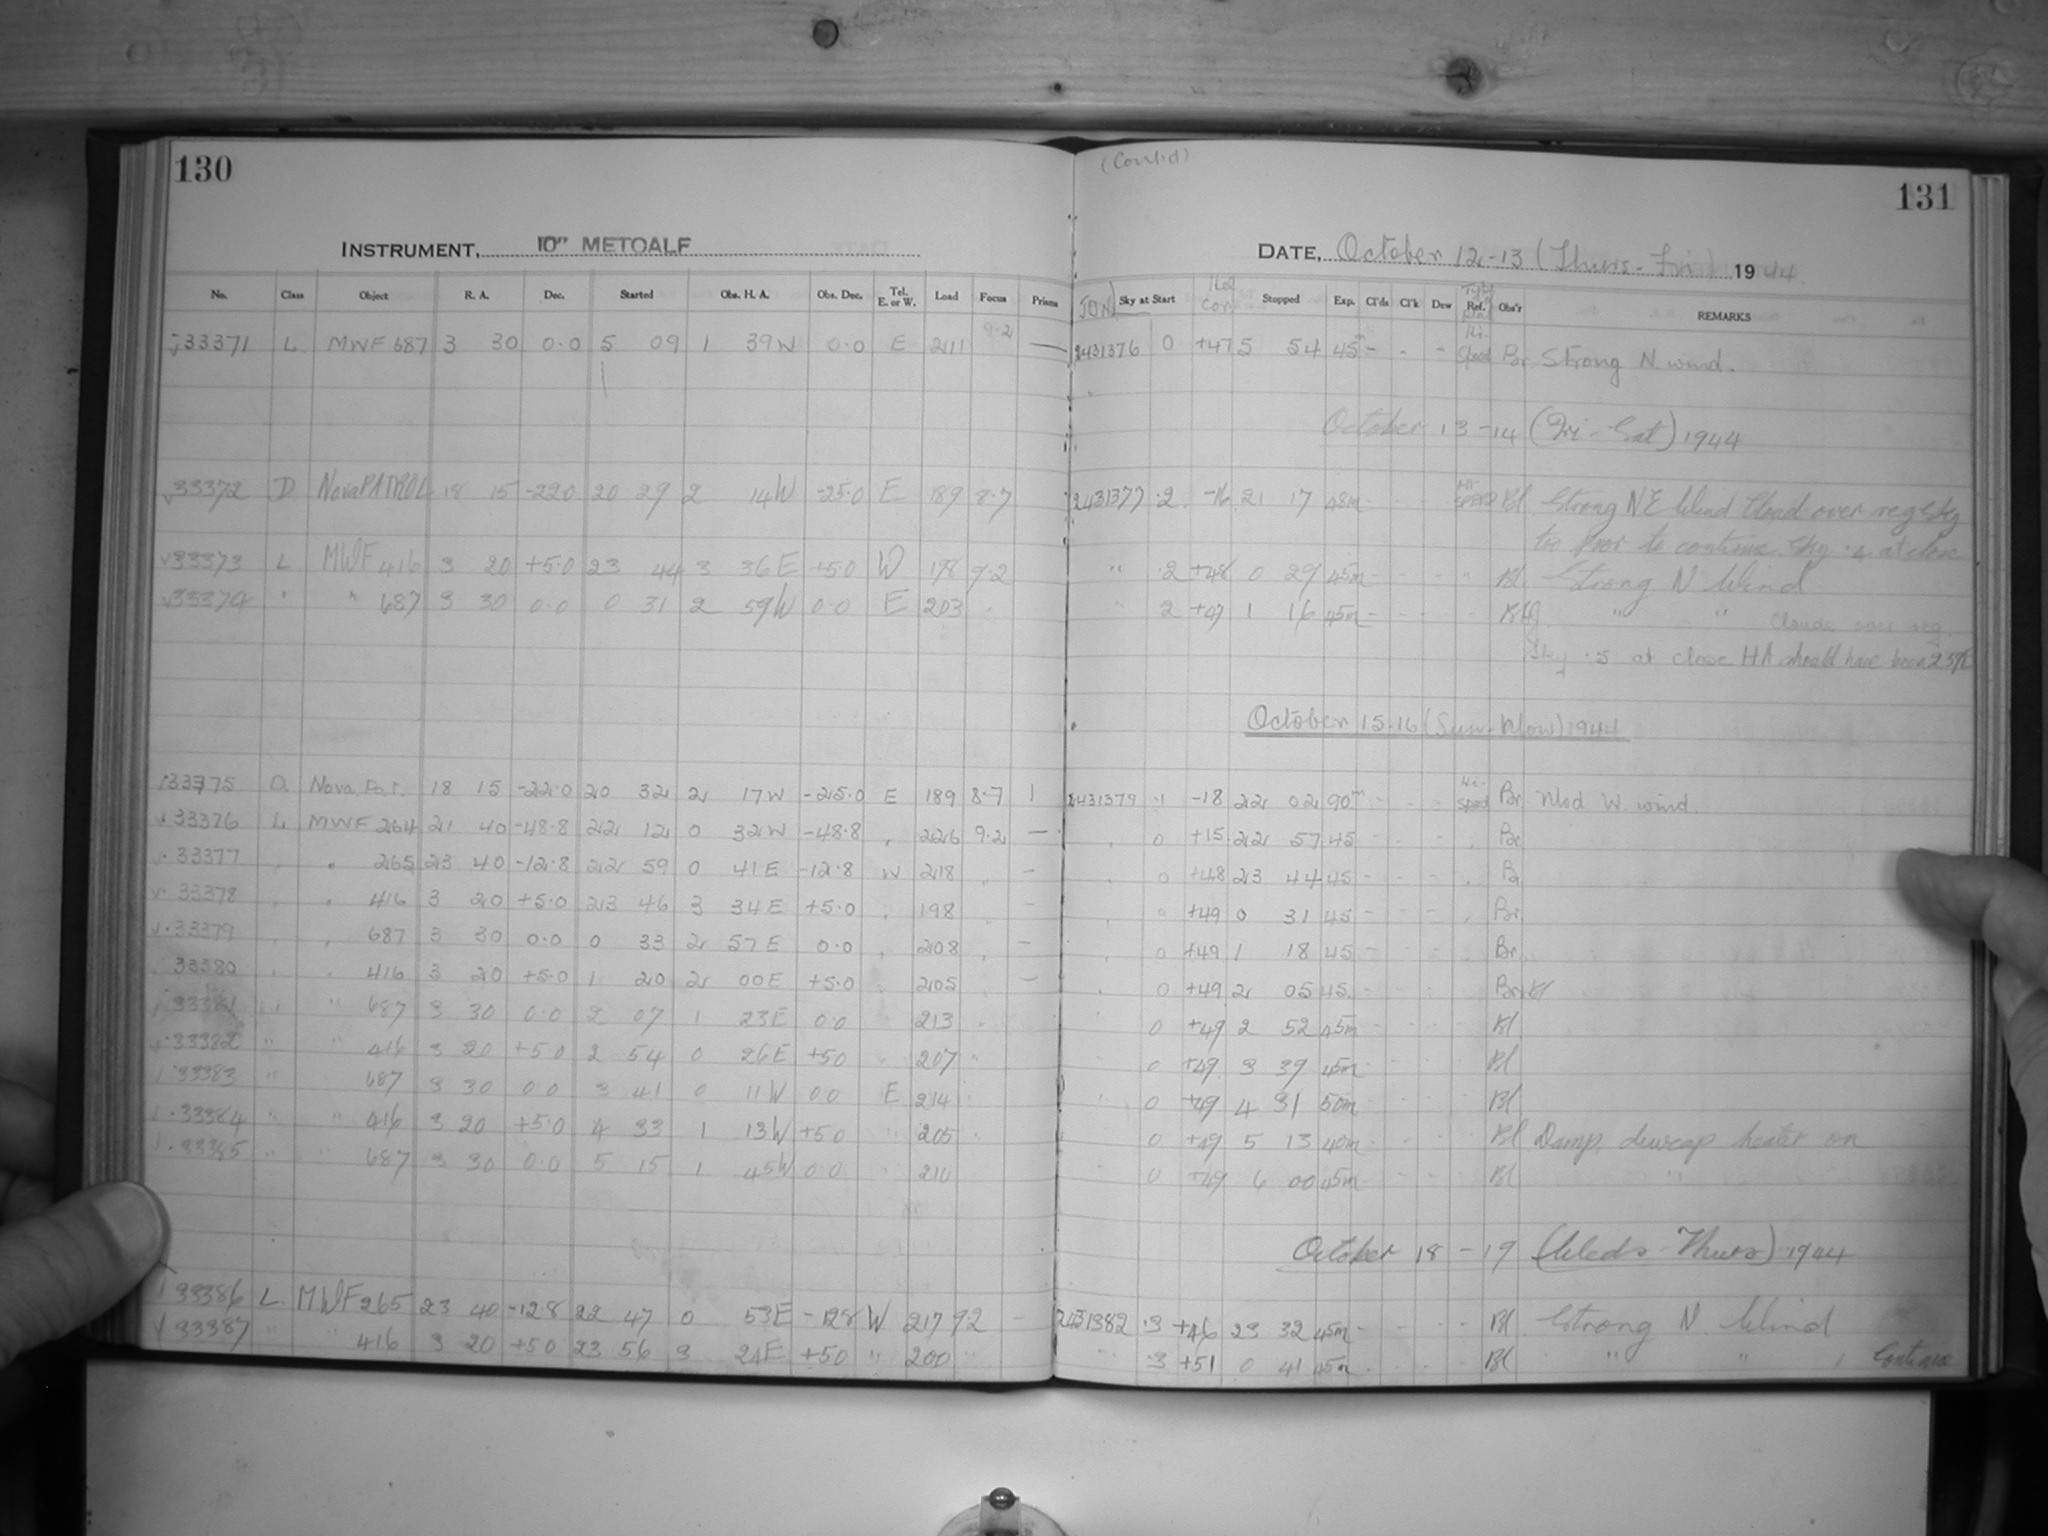 130
(Cont.d)
131
INSTRUMENT, 10" METCALF
DATE, October 12-13 (Thurs-Fri) 1944
No. Class Object R. A. Dec. Started Obs. H. A. Obs. Dec. Tel. E. or W. Load Focus Prisms JDN Sky at Start Stopped Exp. Cl'ds Cl'k Dew Ref. Obs'r REMARKS
33371 L MWF 687 3 30 0.0 5 09 1 39W 0.0 E 211 9.2 — 2431376 0 +47 5 54 45m - - - Hi-Speed Br Strong N. wind.
October 13-14 (Fri-Sat) 1944
33372 D Nova PATROL 18 15 -22.0 20 29 2 14W -25.0 E 189 8.7 1 2431377 .2 -16 21 17 48m HI-SPEED Bl Strong NE Wind Cloud over reg Sky
too poor to continue. Sky .4 at close
33373 L MWF 416 3 20 +5.0 23 44 3 36E +5.0 W 198 9.2 " .2 +48 0 29 45m - - - " Bl Strong N Wind
33374 " " 687 3 30 0.0 0 31 2 59W 0.0 E 203 " " 2 +47 1 16 45m - - - Bl " " Clouds over reg.
Sky .5 at close HA should have been 2 59E
October 15-16 (Sun-Mon) 1944
33375 D Nova Pat. 18 15 -22.0 20 32 2 17W -25.0 E 189 8.7 1 2431379 .1 -18 22 02 90m - - - Hi-Speed Br Mod W. wind.
33376 L MWF 264 21 40 -48.8 22 12 0 32W -48.8 " 226 9.2 — " 0 +15 22 57 45 - - - " Br
33377 " " 265 23 40 -12.8 22 59 0 41E -12.8 W 218 " — " 0 +48 23 44 45 - - - " Br
33378 " " 416 3 20 +5.0 23 46 3 34E +5.0 " 198 " — " 0 +49 0 31 45 - - - " Br
33379 " " 687 3 30 0.0 0 33 2 57E 0.0 " 208 " — " 0 +49 1 18 45 - - - Br
33380 " " 416 3 20 +5.0 1 20 2 00E +5.0 " 205 " — " 0 +49 2 05 45 - - - Br Bl
33381 " " 687 3 30 0.0 2 07 1 23E 0.0 213 " 0 +49 2 52 45m - - - Bl
33382 " " 416 3 20 +5.0 2 54 0 26E +50 " 207 " " 0 +49 3 39 45m - - - Bl
33383 " 687 3 30 0.0 3 41 0 11W 00 E 214 " " 0 +49 4 31 50m - - - Bl
33384 " " 416 3 20 +5.0 4 33 1 13W +50 " 205 " 0 +49 5 13 40m - - - Bl Damp, dewcap heater on
33385 " " 687 3 30 0.0 5 15 1 45W 0.0 " 210 " 0 +49 6 00 45m - - - Bl "
October 18-19 (Weds-Thurs) 1944
33386 L MWF 265 23 40 -12.8 22 47 0 53E -12.8 W 217 9.2 - 2431382 .3 +46 23 32 45m - - - Bl Strong N. Wind
33387 " " 416 3 20 +50 23 56 3 24E +50 " 200 " " .3 +51 0 41 45m - - - Bl " " Continue